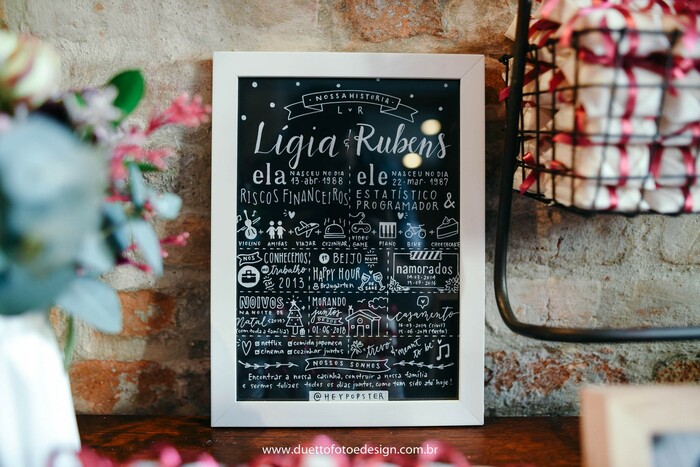 NOSSA HISTÓRIA
L ♥ R
Lígia & Rubens
ela NASCEU NO DIA 13·abr·1988
ele NASCEU NO DIA 22·mar·1987
RISCOS FINANCEIROS
ESTATÍSTICO & PROGRAMADOR
VIOLINO + AMIGAS + VIAJAR + COZINHAR
VIDEO GAME + PIANO + BIKE + CHEESECAKE
NOS CONHECEMOS
no trabalho
2013
1º BEIJO NUM
HAPPY HOUR
Braugarten
namorados
NOIVOS
NA NOITE DE
Natal
(com toda a família)
MORANDO
juntos
01·06·2018
casamento
(civil)
(festa)
netflix
comida japonesa
cinema
cozinhar juntos
trevo
meant to be
NOSSOS SONHOS
Encontrar a nossa casinha, construir a nossa família
e sermos felizes todos os dias juntos, como tem sido até hoje!
@HEYPOPSTER
www.duettofotoedesign.com.br